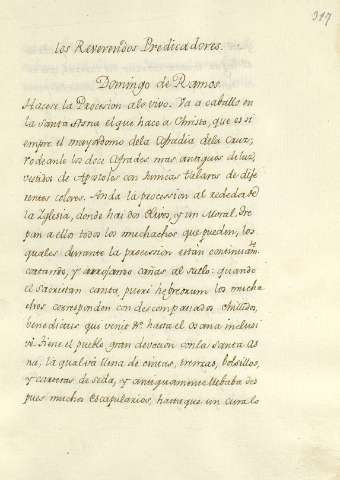 317
los Reverendos Predicadores.
Domingo de Ramos
Hacese la Procesion a lo vivo. Va a caballo en
la Santa Asna el que hace a Christo, que es si
empre el mayordomo dela Cofradia dela Cruz;
rodeanle los doce Cofrades mas antiguos de luz,
vestidos de Apostoles con tunicas talares de dife
rentes colores. Anda la procession al rededor de
la Iglesia, donde hai dos Olivos, y un Moral. Tre
pan a ello todos los muchachos que pueden, los
quales durante la procession están continuamte
cortando, y arrojando cañas al suelo: quando
el sacristan canta, pueri hebreorum los mucha
chos corresponden con descompasados chillidos,
benedictus que venit &c. hasta el osana inclusi
vè. Tiene el pueblo gran devocion con la Santa As
na; la qual và llena de cintas, trenzas, bolsillos,
y carteras de seda, y antiguamente llebaba des
pues muchos escapularios, hasta que un cura lo